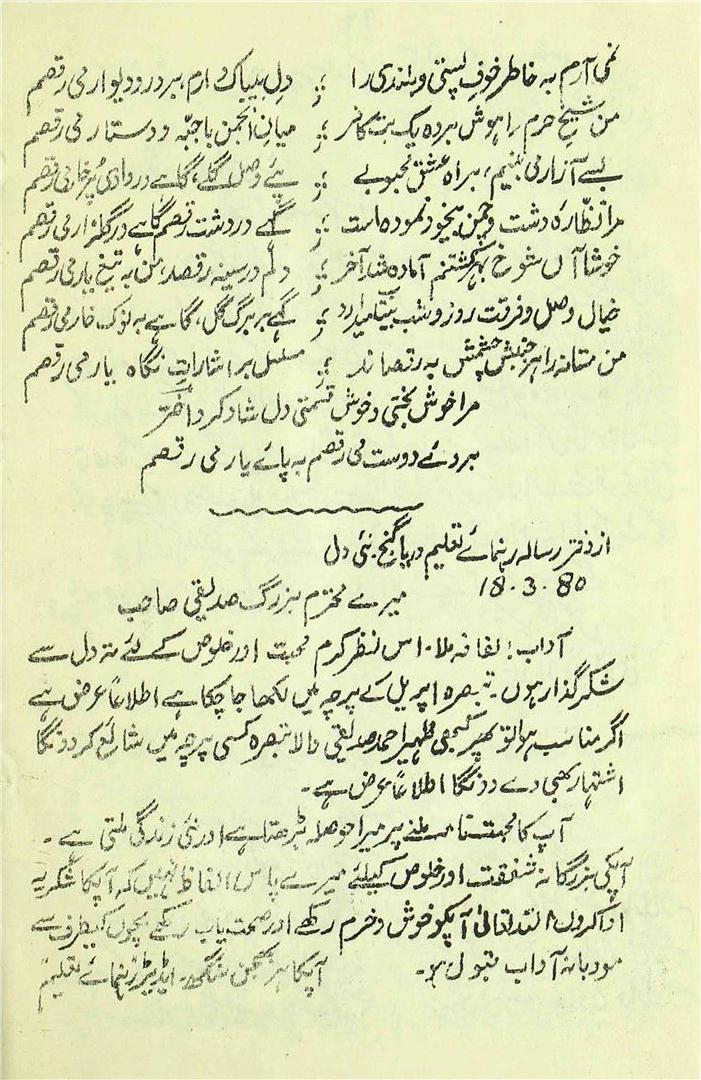 نمی آرم بہ خاطر خوفِ پستی و بلندی را ؛ دلِ بیباک دارم، بر در و دیوار می رقصم
من شیخِ حرم را ہوش بردہ یک بت کافر ؛ میانِ انجمن با جبّہ و دستار می رقصم
بسے آزار می بینم، براہ عشقِ محبوبے ؛ پئے وصلِ گلے، گاہے در وادیٔ پُر خار می رقصم
مرا نظّارۂ دشت و چمن بیخود نمودہ است ؛ گہے در دشت رقصم گاہے در گلزار می رقصم
خوشا آں شوخ بہر کشتنم آمادہ شد آخر ؛ دلم در سینہ رقصد، من بہ تیغِ یار می رقصم
خیال وصل و فرقت روز و شب بیتاب میدارد ؛ گہے بر برگِ گل، گاہے بہ نوک خار می رقصم
من مستانہ را ہر جنبشِ چشمش بہ رقصاند ؛ مسلسل بر اشاراتِ نگاہ یار می رقصم
مرا خوش بختی و خوش قسمتی دل شاد کرد اختر
بروئے دوست می رقصم بہ پائے یار می رقصم
از دفتر رسالہ رہنمائے تعلیم دریا گنج نئی دلی
18.3.80
میرے محترم بزرگ صدیقی صاحب
آداب! لفافہ ملا۔ اس نظر کرم محبت اور خلوص کے لئے تہ دل سے
شکر گذار ہوں۔ تبصرہ اپریل کے پرچہ میں لکھا جا چکا ہے اطلاعاً عرض ہے
اگر مناسب ہوا تو پھر کبھی ظہیر احمد صدیقی والا تبصرہ کسی پرچہ میں شائع کر دونگا
اشتہار بھی دے دونگا اطلاعاً عرض ہے۔
آپ کا محبت نامہ ملنے پر میرا حوصلہ بڑھتا ہے اور نئی زندگی ملتی ہے۔
آپکی بزرگانہ شفقت اور خلوص کیلئے میرے پاس الفاظ نہیں کہ آپکا شکریہ
ادا کروں اللہ تعالیٰ آپکو خوش و خرم رکھے اور صحت یاب رکھے بچوں کیطرف سے
مودبانہ آداب قبول ہو۔ آپکا ہر بھجن سنگھ۔ ایڈیٹر رہنمائے تعلیم